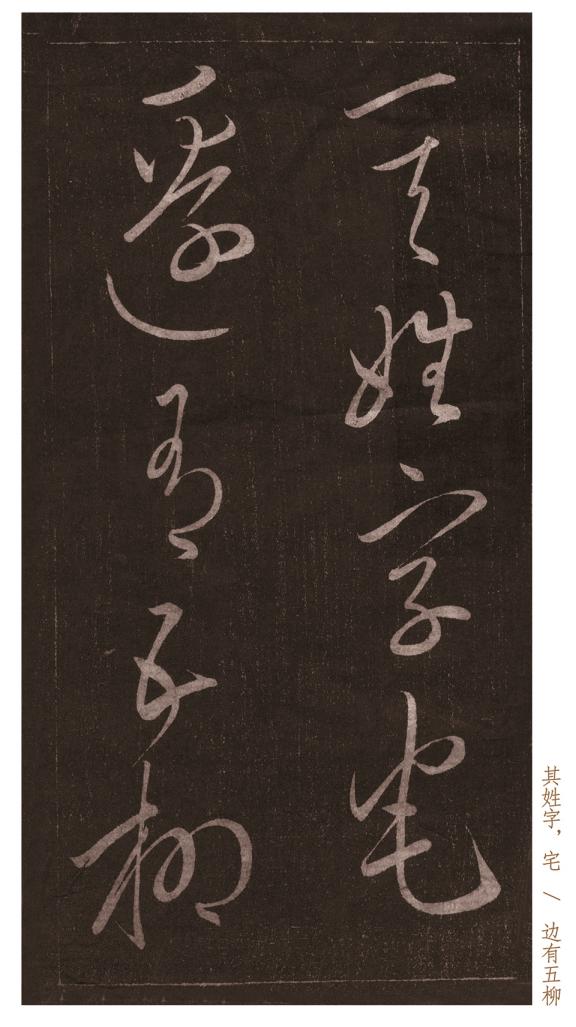 其姓字宅
邊有五柳
其姓字，宅 / 边有五柳